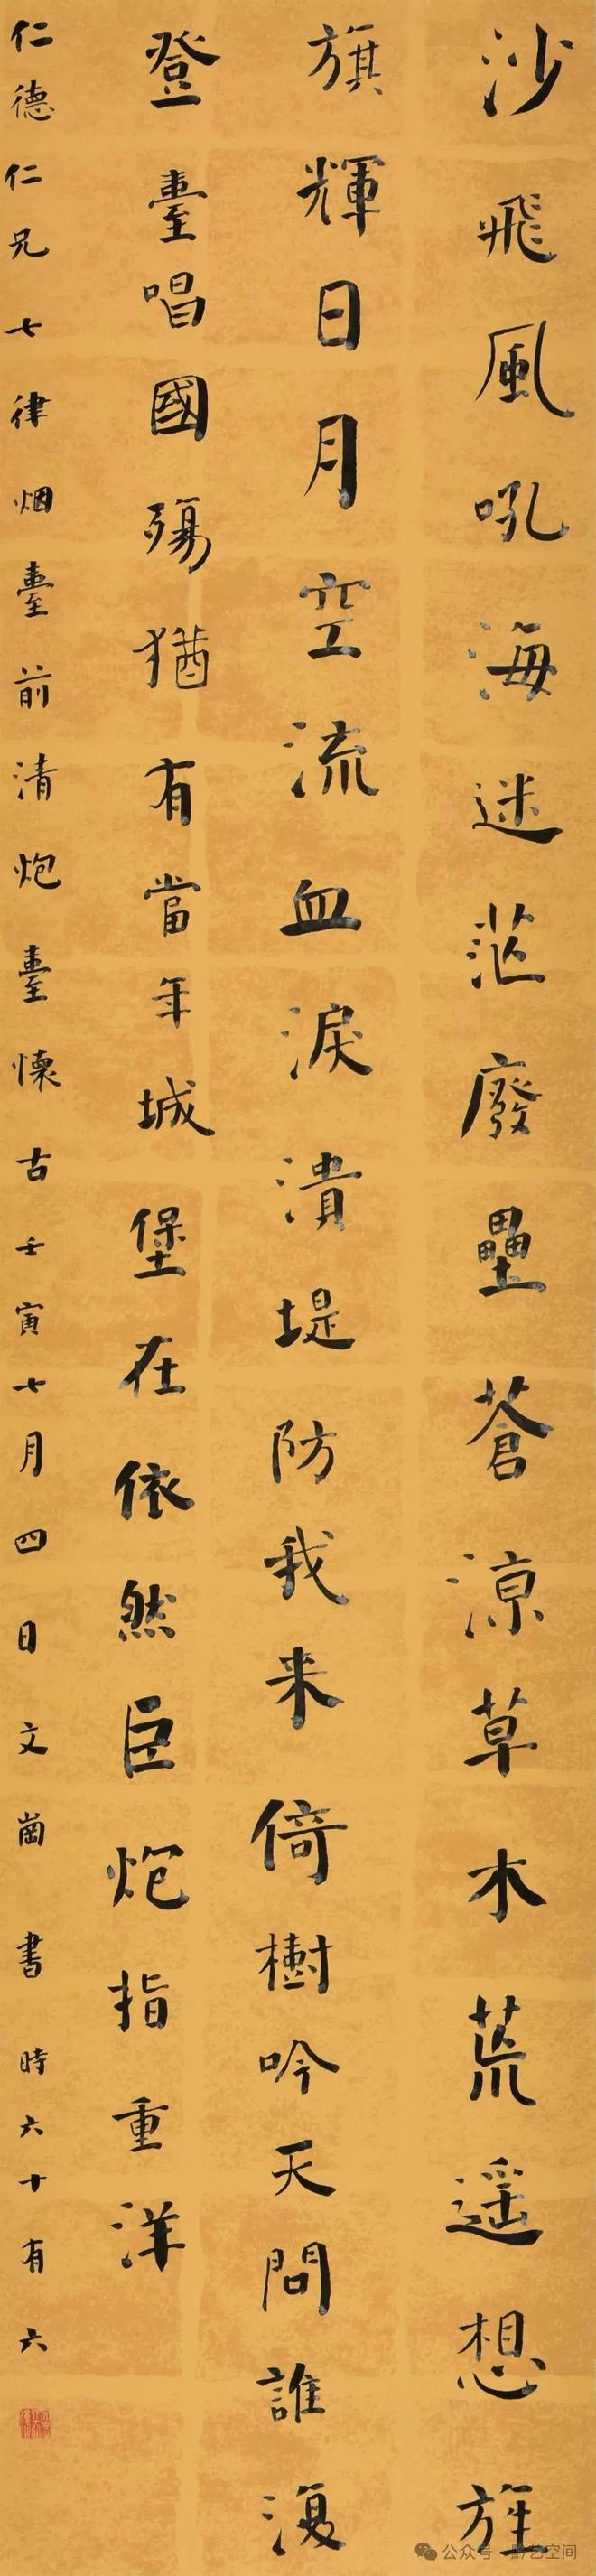 沙飛風吼海迷茫廢壘蒼涼草木荒遥想旌
旗輝日月空流血淚潰堤防我来倚樹吟天問誰復
登臺唱國殤猶有當年城堡在依然臣炮指重洋
仁德仁兄七律烟臺前清炮臺懷古壬寅七月四日文崗書時六十有六
公众号·艺空间